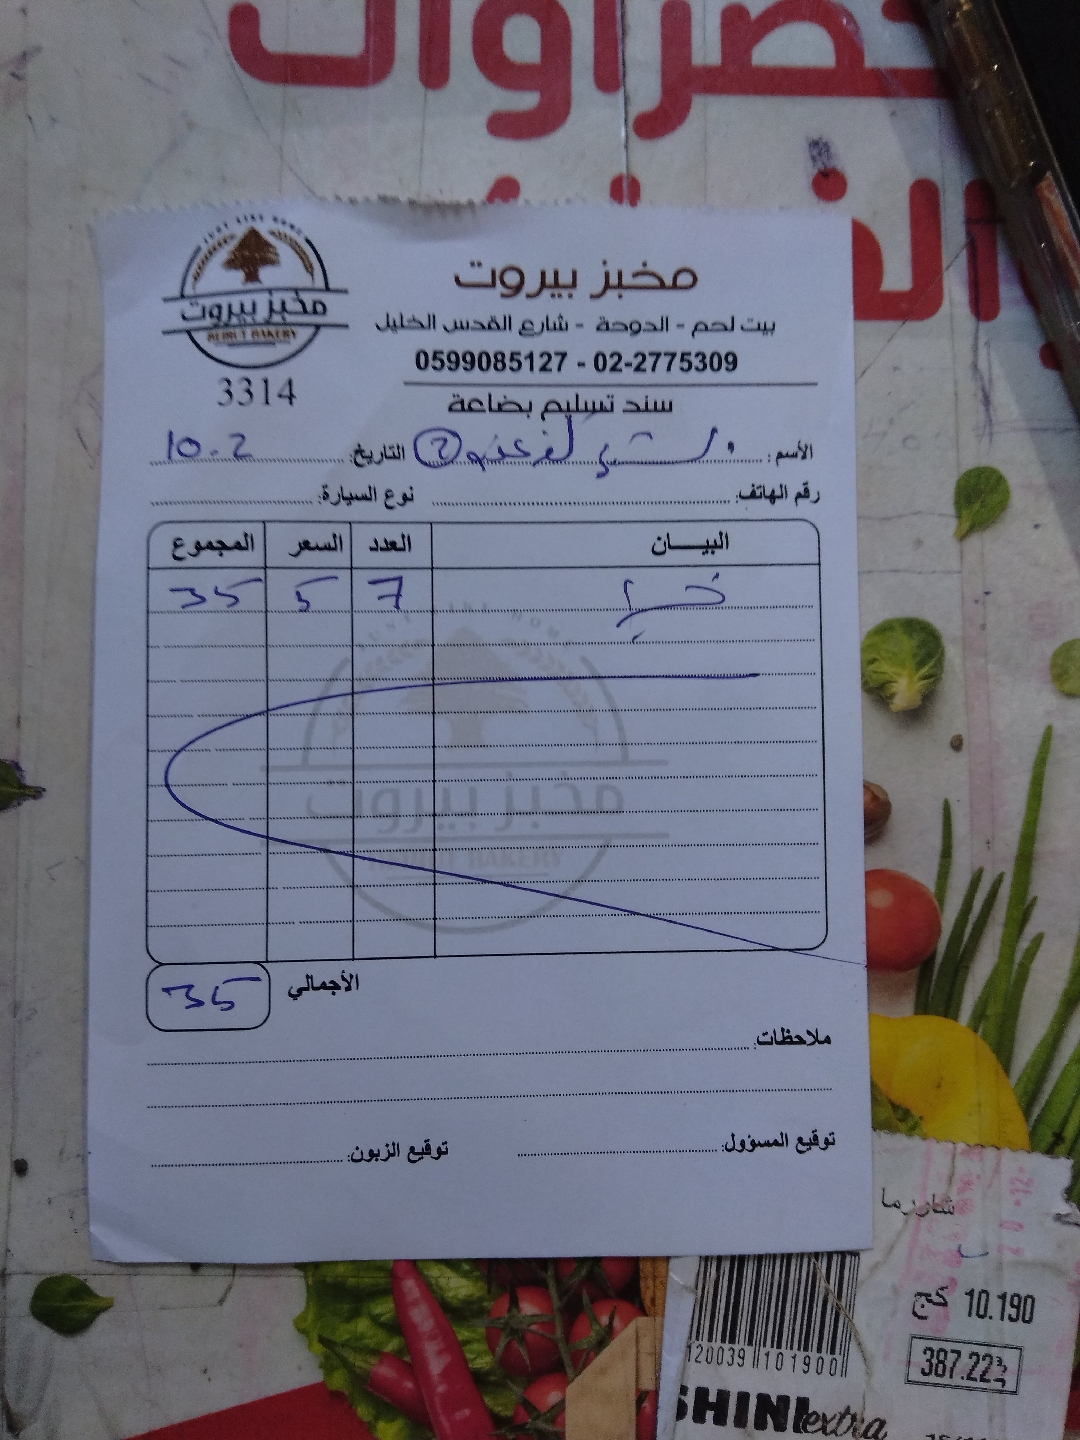 خضراوات
JUST LIKE HOME
مخبز بيروت
BEIRUT BAKERY
3314
مخبز بيروت
بيت لحم - الدوحة - شارع القدس الخليل
0599085127 - 02-2775309
سند تسليم بضاعة
الأسم: 2 التاريخ: 10.2
رقم الهاتف: نوع السيارة:
البيـــان العدد السعر المجموع
خبز 7 5 35
JUST LIKE HOME
مخبز بيروت
BEIRUT BAKERY
الأجمالي 35
ملاحظات:
توقيع المسؤول: توقيع الزبون:
شاورما
10.190 كج
387.22
120039 101900
SHINI extra